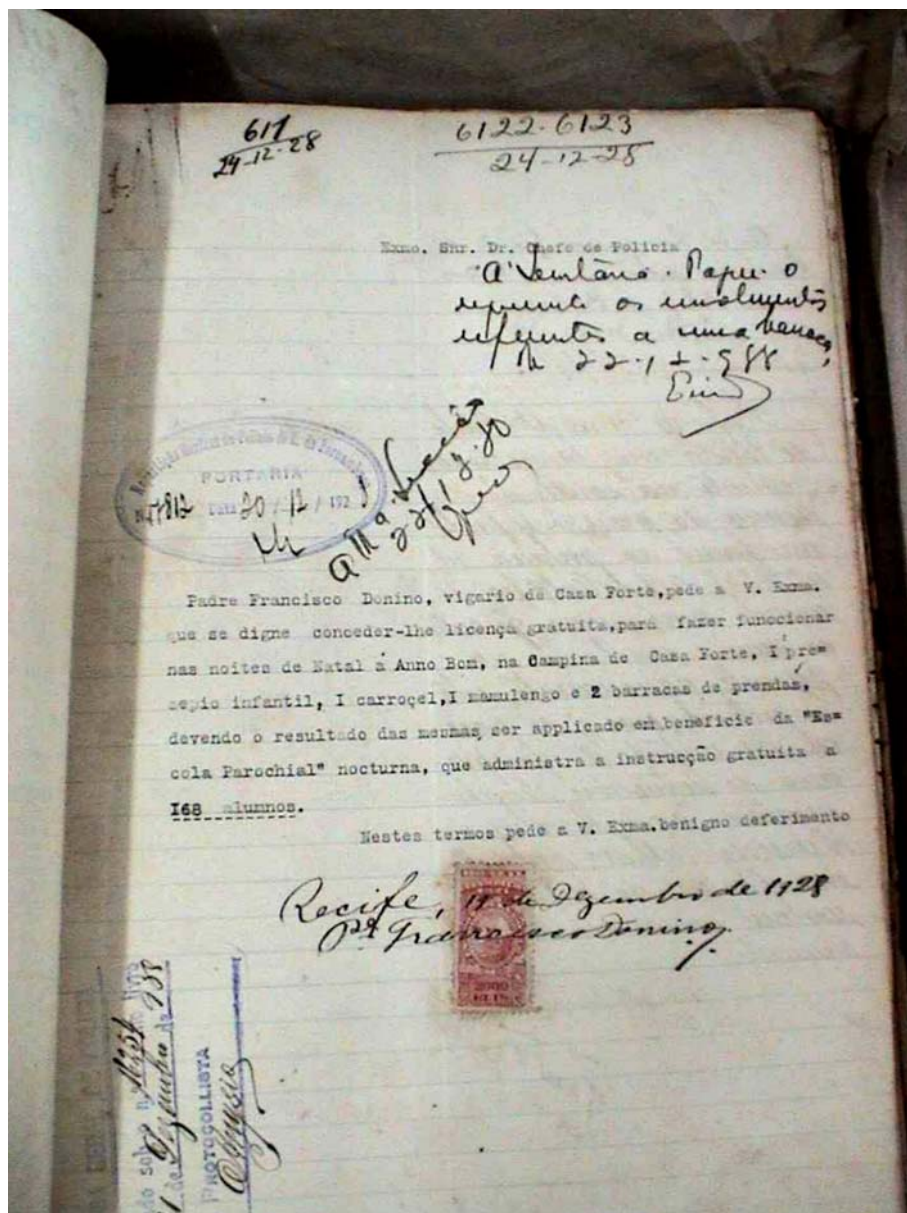 611
24-12-28
6122-6123
24-12-28
Exmo. Snr. Dr. Chefe de Policia
o
os emolumentos
referentes a uma barraca,
PORTARIA
Data 20 / 12 / 192
Padre Francisco Donino, vigario de Casa Forte,pede a V. Exma.
que se digne conceder-lhe licença gratuita,para fazer funccionar
nas noites de Natal á Anno Bom, na Campina de Casa Forte, I pre=
sepio infantil, I carroçel,I mamulengo e 2 barracas de prendas,
devendo o resultado das mesmas ser applicado em beneficio da "Es=
cola Parochial" nocturna, que administra a instrucção gratuita a
I68 alumnos.
Nestes termos pede a V. Exma.benigno deferimento
Recife, 19 de Dezembro de 1928
Pe Francisco Donino
2000
REIS
de Dezembro de
PROTOCOLLISTA